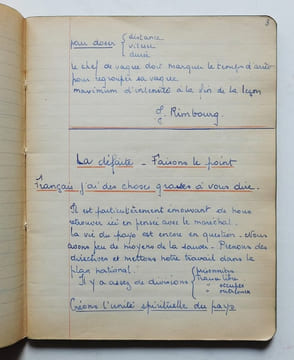 3
pour doser { distance
vitesse
durée
le chef de vague doit marquer le temps d'arrêt
pour regrouper sa vague
maximum d'intensité à la fin de la leçon
J. Rimbourg.
La défaite - Faisons le point
Français j'ai des choses graves à vous dire.
Il est particulièrement émouvant de nous
retrouver ici en pensée avec le maréchal.
La vie du pays est encore en question. Nous
avons peu de moyens de la sauver. Prenons des
directives et mettons notre travail dans le
plan national.
Il y a assez de divisions { prisonniers
zone libre
" occupée
" interdite
Créons l'unité spirituelle du pays